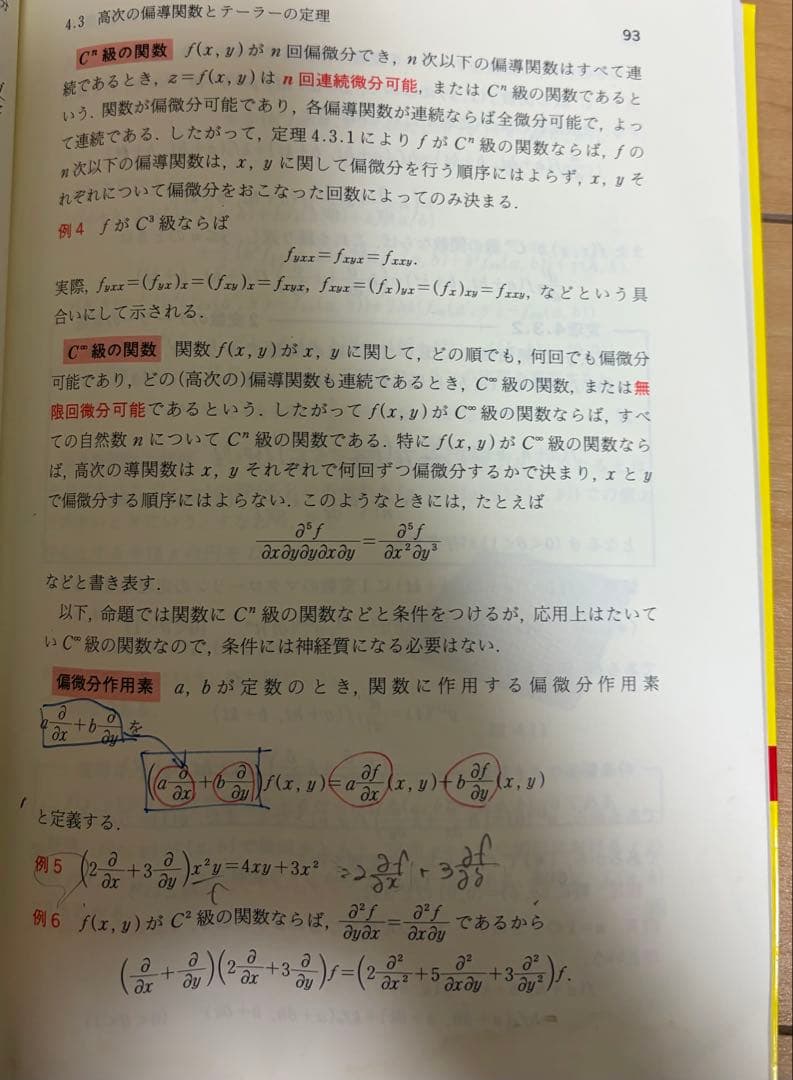 4.3 高次の偏導関数とテーラーの定理
93
Cⁿ級の関数 f(x, y) が n 回偏微分でき, n 次以下の偏導関数はすべて連
続であるとき, z=f(x, y) は n 回連続微分可能, または Cⁿ 級の関数であると
いう. 関数が偏微分可能であり, 各偏導関数が連続ならば全微分可能で, よっ
て連続である. したがって, 定理 4.3.1 により f が Cⁿ 級の関数ならば, f の
n 次以下の偏導関数は, x, y に関して偏微分を行う順序にはよらず, x, y そ
れぞれについて偏微分をおこなった回数によってのみ決まる.
例4 f が C³ 級ならば
f_{yxx}=f_{xyx}=f_{xxy}.
実際, f_{yxx}=(f_{yx})_x=(f_{xy})_x=f_{xyx}, f_{xyx}=(f_x)_{yx}=(f_x)_{xy}=f_{xxy}, などという具
合いにして示される.
C^∞級の関数 関数 f(x, y) が x, y に関して, どの順でも, 何回でも偏微分
可能であり, どの(高次の)偏導関数も連続であるとき, C^∞ 級の関数, または無
限回微分可能であるという. したがって f(x, y) が C^∞ 級の関数ならば, すべ
ての自然数 n について Cⁿ 級の関数である. 特に f(x, y) が C^∞ 級の関数なら
ば, 高次の導関数は x, y それぞれで何回ずつ偏微分するかで決まり, x と y
で偏微分する順序にはよらない. このようなときには, たとえば
∂⁵f/∂x∂y∂y∂x∂y = ∂⁵f/∂x²∂y³
などと書き表す.
以下, 命題では関数に Cⁿ 級の関数などと条件をつけるが, 応用上はたいて
い C^∞ 級の関数なので, 条件には神経質になる必要はない.
偏微分作用素 a, b が定数のとき, 関数に作用する偏微分作用素
a ∂/∂x + b ∂/∂y を
(a ∂/∂x + b ∂/∂y) f(x, y) = a ∂f/∂x (x, y) + b ∂f/∂y (x, y)
と定義する.
例5 (2 ∂/∂x + 3 ∂/∂y) x²y = 4xy + 3x² = 2 ∂f/∂x + 3 ∂f/∂y
f
例6 f(x, y) が C² 級の関数ならば, ∂²f/∂y∂x = ∂²f/∂x∂y であるから
(∂/∂x + ∂/∂y)(2 ∂/∂x + 3 ∂/∂y) f = (2 ∂²/∂x² + 5 ∂²/∂x∂y + 3 ∂²/∂y²) f.